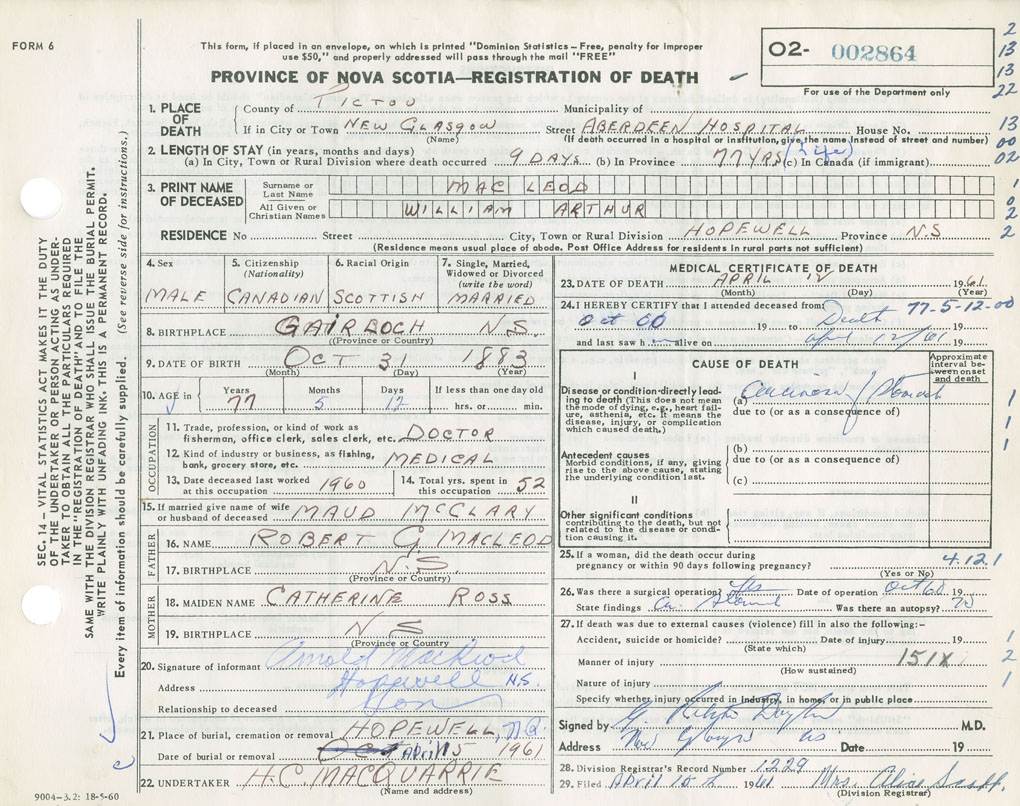 FORM 6
This form, if placed in an envelope, on which is printed "Dominion Statistics – Free, penalty for improper
use $50," and properly addressed will pass through the mail "FREE"
PROVINCE OF NOVA SCOTIA—REGISTRATION OF DEATH
O2- 002864
For use of the Department only
2
13
13
22
13
00
02
1
0
2
2
1. PLACE OF DEATH
County of PICTOU Municipality of
If in City or Town NEW GLASGOW Street ABERDEEN HOSPITAL House No.
(Name) (If death occurred in a hospital or institution, give the name instead of street and number)
2. LENGTH OF STAY (in years, months and days)
(a) In City, Town or Rural Division where death occurred 9 DAYS (b) In Province 77 YRS (Life) (c) In Canada (if immigrant)
3. PRINT NAME OF DECEASED
Surname or Last Name MAC LEOD
All Given or Christian Names WILLIAM ARTHUR
RESIDENCE No Street City, Town or Rural Division HOPEWELL Province N.S
(Residence means usual place of abode. Post Office Address for residents in rural parts not sufficient)
4. Sex MALE
5. Citizenship (Nationality) CANADIAN
6. Racial Origin SCOTTISH
7. Single, Married, Widowed or Divorced (write the word) MARRIED
8. BIRTHPLACE GAIRLOCH N.S.
(Province or Country)
9. DATE OF BIRTH OCT 31 1883
(Month) (Day) (Year)
10. AGE in Years 77 Months 5 Days 12 If less than one day old hrs. or min.
OCCUPATION
11. Trade, profession, or kind of work as fisherman, office clerk, sales clerk, etc. DOCTOR
12. Kind of industry or business, as fishing, bank, grocery store, etc. MEDICAL
13. Date deceased last worked at this occupation 1960
14. Total yrs. spent in this occupation 52
15. If married give name of wife or husband of deceased MAUD MCCLARY
FATHER
16. NAME ROBERT G MACLEOD
17. BIRTHPLACE N.S.
(Province or Country)
MOTHER
18. MAIDEN NAME CATHERINE ROSS
19. BIRTHPLACE N S
(Province or Country)
20. Signature of informant Arnold MacLeod
Address Hopewell N.S.
Relationship to deceased Son
21. Place of burial, cremation or removal HOPEWELL, N.S.
Date of burial or removal APRIL 15 1961
22. UNDERTAKER H.C. MACQUARRIE
(Name and address)
9004-3.2: 18-5-60
MEDICAL CERTIFICATE OF DEATH
23. DATE OF DEATH APRIL 12 1961
(Month) (Day) (Year)
24. I HEREBY CERTIFY that I attended deceased from 77-5-12-00
Oct 60 19 to Death 19
and last saw him alive on April 12/61 19
CAUSE OF DEATH
Approximate interval between onset and death
I
Disease or condition directly leading to death (This does not mean the mode of dying, e.g., heart failure, asthenia, etc. It means the disease, injury, or complication which caused death.)
(a) Carcinoma / Stomach
due to (or as a consequence of)
Antecedent causes
Morbid conditions, if any, giving rise to the above cause, stating the underlying condition last.
(b)
due to (or as a consequence of)
(c)
II
Other significant conditions
contributing to the death, but not related to the disease or condition causing it.
1
1
1
25. If a woman, did the death occur during pregnancy or within 90 days following pregnancy? 4.12.1
(Yes or No)
26. Was there a surgical operation? Yes Date of operation Oct 60 19
State findings Ca. Stomach Was there an autopsy? No
27. If death was due to external causes (violence) fill in also the following:–
Accident, suicide or homicide? Date of injury 19
(State which)
Manner of injury 151X
(How sustained)
Nature of injury
Specify whether injury occurred in industry, in home, or in public place
1
2
1
Signed by G. M.D.
Address New Glasgow NS Date 19
28. Division Registrar's Record Number 1229
29. Filed April 15th 1961 Mrs. Alice
(Division Registrar)
SEC. 14 – VITAL STATISTICS ACT MAKES IT THE DUTY
OF THE UNDERTAKER OR PERSON ACTING AS UNDER-
TAKER TO OBTAIN ALL THE PARTICULARS REQUIRED
IN THE "REGISTRATION OF DEATH" AND TO FILE THE
SAME WITH THE DIVISION REGISTRAR WHO SHALL ISSUE THE BURIAL PERMIT.
WRITE PLAINLY WITH UNFADING INK. THIS IS A PERMANENT RECORD.
Every item of information should be carefully supplied. (See reverse side for instructions.)